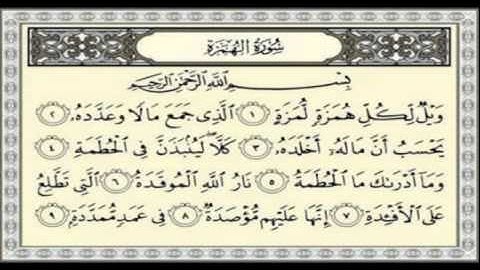 سُورَةُ الْهُمَزَةِ
بِسْمِ اللَّهِ الرَّحْمَٰنِ الرَّحِيمِ
وَيْلٌ لِّكُلِّ هُمَزَةٍ لُّمَزَةٍ ١ الَّذِي جَمَعَ مَالًا وَعَدَّدَهُۥ ٢
يَحْسَبُ أَنَّ مَالَهُۥٓ أَخْلَدَهُۥ ٣ كَلَّا ۖ لَيُنۢبَذَنَّ فِي الْحُطَمَةِ ٤
وَمَآ أَدْرَىٰكَ مَا الْحُطَمَةُ ٥ نَارُ اللَّهِ الْمُوقَدَةُ ٦ الَّتِي تَطَّلِعُ
عَلَى الْأَفْـِٔدَةِ ٧ إِنَّهَا عَلَيْهِم مُّؤْصَدَةٌ ٨ فِي عَمَدٍ مُّمَدَّدَةٍۭ ٩